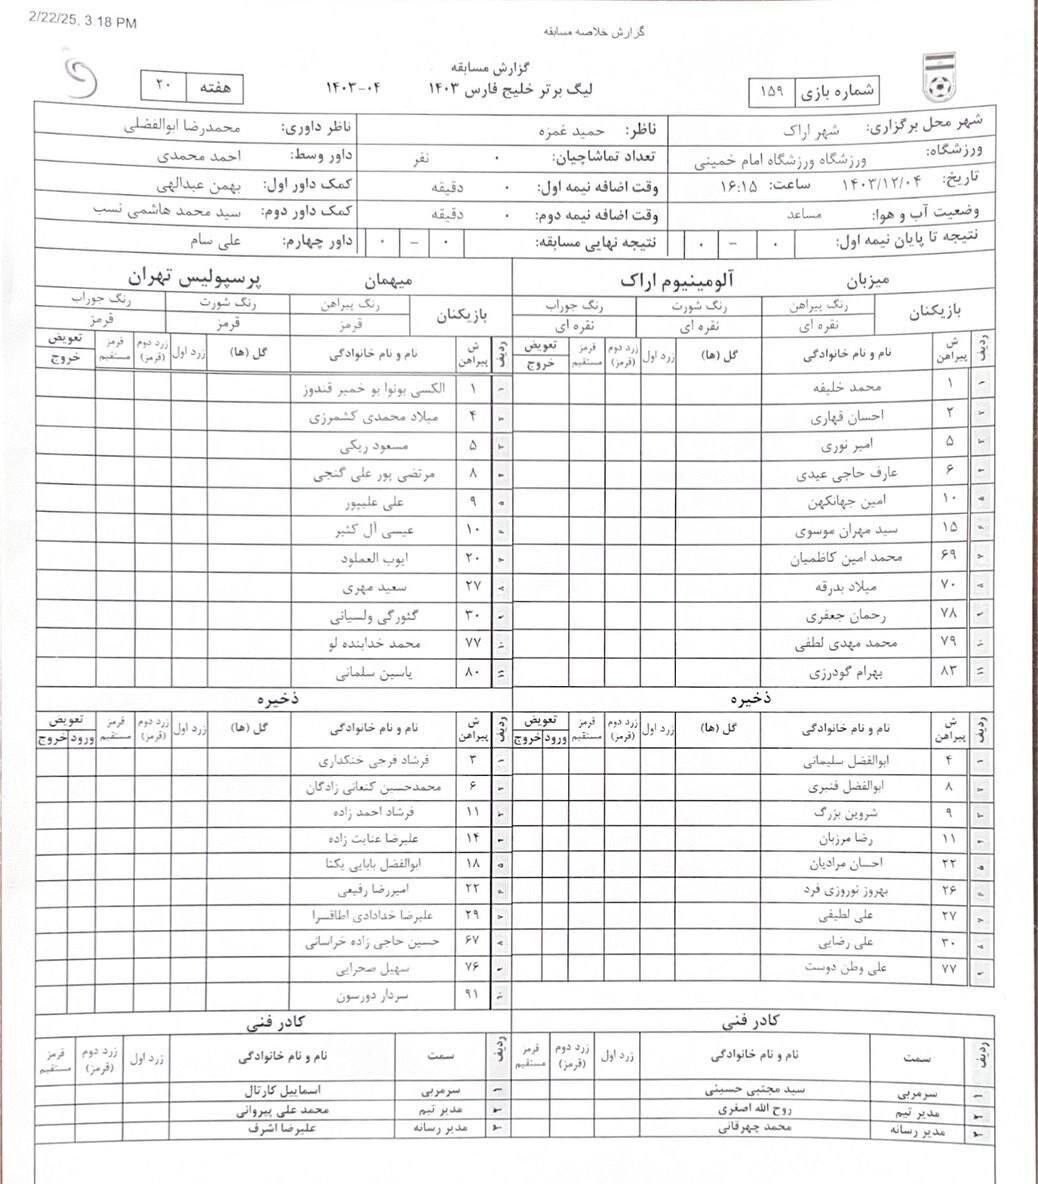 2/22/25, 3:18 PM
گزارش خلاصه مسابقه
گزارش مسابقه
شماره بازی ۱۵۹
لیگ برتر خلیج فارس ۱۴۰۳ ۰۴-۱۴۰۳
هفته ۲۰
شهر محل برگزاری: شهر اراک
ناظر: حمید غمزه
ناظر داوری: محمدرضا ابوالفضلی
ورزشگاه: ورزشگاه ورزشگاه امام خمینی
تعداد تماشاچیان: ۰ نفر
داور وسط: احمد محمدی
تاریخ: ۱۴۰۳/۱۲/۰۴ ساعت: ۱۶:۱۵
وقت اضافه نیمه اول: ۰ دقیقه
کمک داور اول: بهمن عبدالهی
وضعیت آب و هوا: مساعد
وقت اضافه نیمه دوم: ۰ دقیقه
کمک داور دوم: سید محمد هاشمی نسب
نتیجه تا پایان نیمه اول: ۰ - ۰
نتیجه نهایی مسابقه: ۰ - ۰
داور چهارم: علی سام
میزبان آلومینیوم اراک
بازیکنان
رنگ پیراهن رنگ شورت رنگ جوراب
نقره ای نقره ای نقره ای
ردیف ش پیراهن نام و نام خانوادگی گل (ها) زرد اول زرد دوم (قرمز) قرمز مستقیم تعویض خروج
۱ ۱ محمد خلیفه
۲ ۲ احسان قهاری
۳ ۵ امیر نوری
۴ ۶ عارف حاجی عیدی
۵ ۱۰ امین جهانکهن
۶ ۱۵ سید مهران موسوی
۷ ۶۹ محمد امین کاظمیان
۸ ۷۰ میلاد بدرقه
۹ ۷۸ رحمان جعفری
۱۰ ۷۹ محمد مهدی لطفی
۱۱ ۸۳ بهرام گودرزی
ذخیره
ردیف ش پیراهن نام و نام خانوادگی گل (ها) زرد اول زرد دوم (قرمز) قرمز مستقیم تعویض ورود خروج
۱ ۴ ابوالفضل سلیمانی
۲ ۸ ابوالفضل قنبری
۳ ۹ شروین بزرگ
۴ ۱۱ رضا مرزبان
۵ ۲۲ احسان مرادیان
۶ ۲۶ بهروز نوروزی فرد
۷ ۲۷ علی لطیفی
۸ ۳۰ علی رضایی
۹ ۷۷ علی وطن دوست
کادر فنی
ردیف سمت نام و نام خانوادگی زرد اول زرد دوم (قرمز) قرمز مستقیم
۱ سرمربی سید مجتبی حسینی
۲ مدیر تیم روح الله اصغری
۳ مدیر رسانه محمد چهرقانی
میهمان پرسپولیس تهران
بازیکنان
رنگ پیراهن رنگ شورت رنگ جوراب
قرمز قرمز قرمز
ردیف ش پیراهن نام و نام خانوادگی گل (ها) زرد اول زرد دوم (قرمز) قرمز مستقیم تعویض خروج
۱ ۱ الکسی بونوا بو خمیر قندوز
۲ ۴ میلاد محمدی کشمرزی
۳ ۵ مسعود ریکی
۴ ۸ مرتضی پور علی گنجی
۵ ۹ علی علیپور
۶ ۱۰ عیسی آل کثیر
۷ ۲۰ ایوب العملود
۸ ۲۷ سعید مهری
۹ ۳۰ گئورگی ولسیانی
۱۰ ۷۷ محمد خدابنده لو
۱۱ ۸۰ یاسین سلمانی
ذخیره
ردیف ش پیراهن نام و نام خانوادگی گل (ها) زرد اول زرد دوم (قرمز) قرمز مستقیم تعویض ورود خروج
۱ ۳ فرشاد فرجی خنکداری
۲ ۶ محمدحسین کنعانی زادگان
۳ ۱۱ فرشاد احمد زاده
۴ ۱۴ علیرضا عنایت زاده
۵ ۱۸ ابوالفضل بابایی یکتا
۶ ۲۲ امیررضا رفیعی
۷ ۲۹ علیرضا خدادادی اطاقسرا
۸ ۶۷ حسین حاجی زاده خراسانی
۹ ۷۶ سهیل صحرایی
۱۰ ۹۱ سردار دورسون
کادر فنی
ردیف سمت نام و نام خانوادگی زرد اول زرد دوم (قرمز) قرمز مستقیم
۱ سرمربی اسماییل کارتال
۲ مدیر تیم محمد علی پیروانی
۳ مدیر رسانه علیرضا اشرف